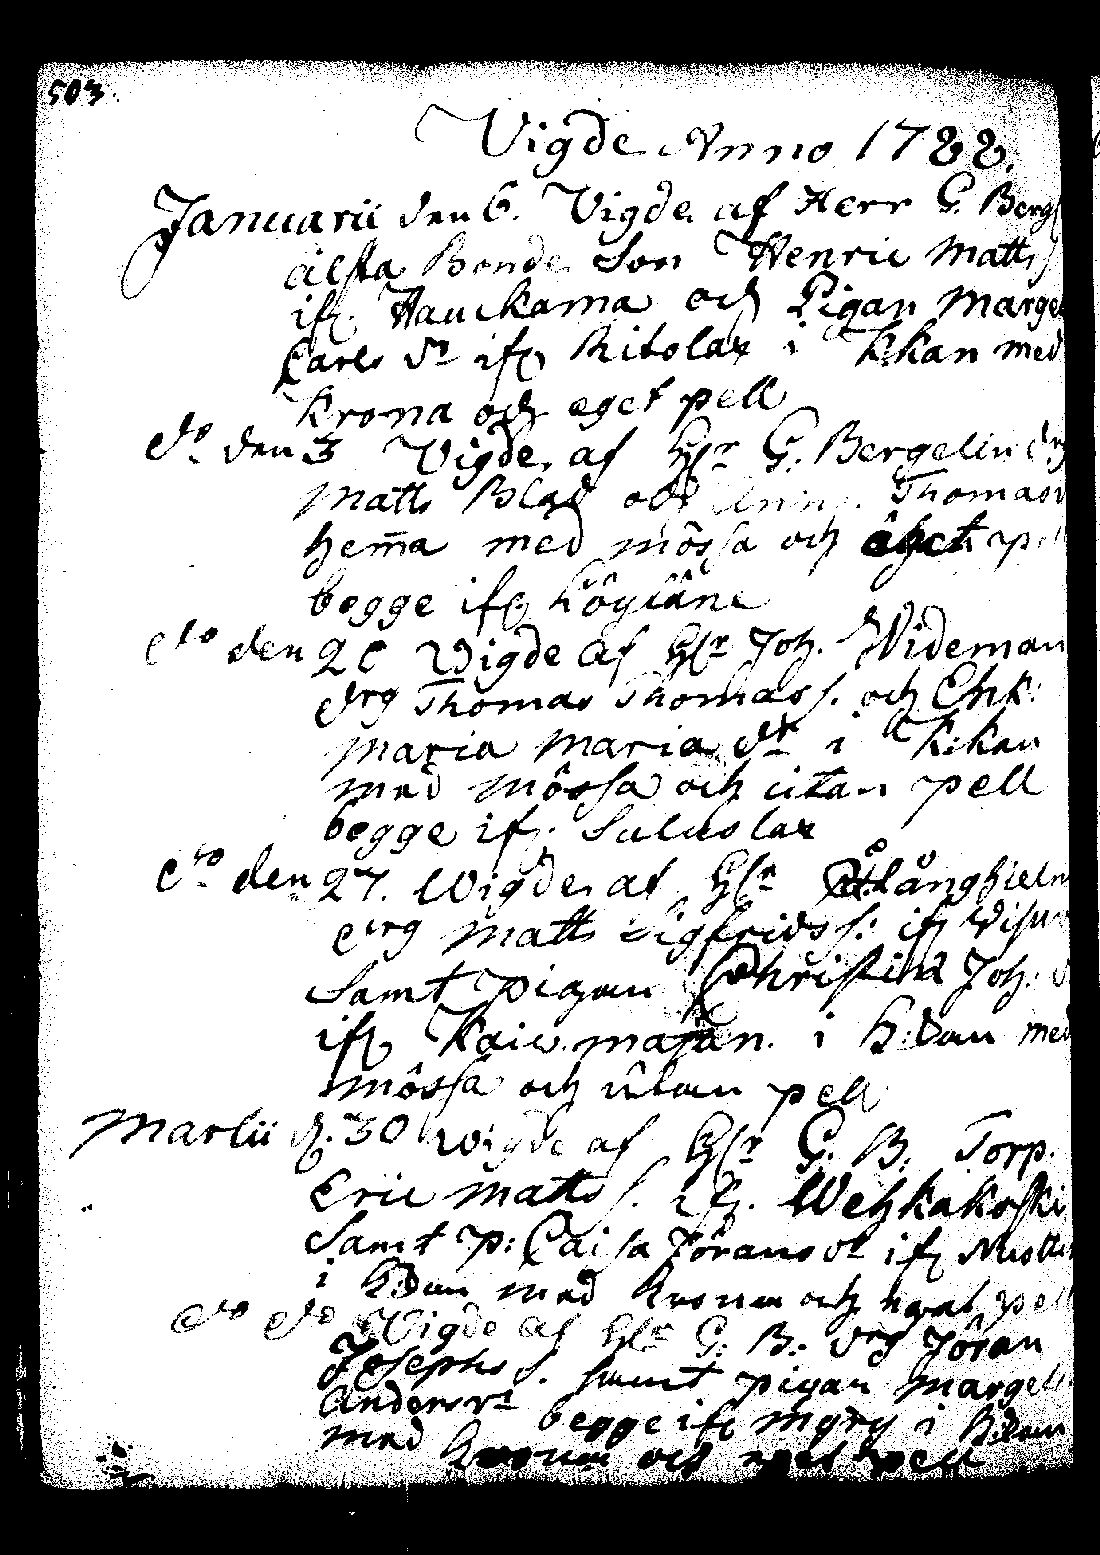 503.
Vigde Anno 1788.
Januarii den 6. Vigde af Herr G. Berg
älsta Bonde Son Henric Matts
ifr. Hauckama och Pigan Marge
Carls dr ifr Ritolax i Kkan med
Krona och eget pell
do den 3 Vigde af Hr G. Bergelin drg
Matts Blad och Thomasd
hem̄a med mössa och eget pell
begge ifr
do den 20 Vigde af Hr Joh. Wideman
drg Thomas Thomas s. och Enk:
Maria Maria dr i K:kan
med mössa och utan pell
begge ifr. Sulkolax
do den 27. Wigde af Hr Långhielm
drg Matts Sigfrids s: ifr
Samt Pigan Christina Joh: d
ifr i h:dan med
mössa och utan pell
Martii d. 30 Wigde af Hr G. B. Torp.
Eric Matts s. ifr. Wehkakoski
Samt P: Caisa Jörans dr ifr
i hdan med krona och eget pell
do do Vigde af Hr G: B: drg Jöran
Josephs s. samt pigan Marget
Anders dr begge ifr i h:dan
med krona och eget pell